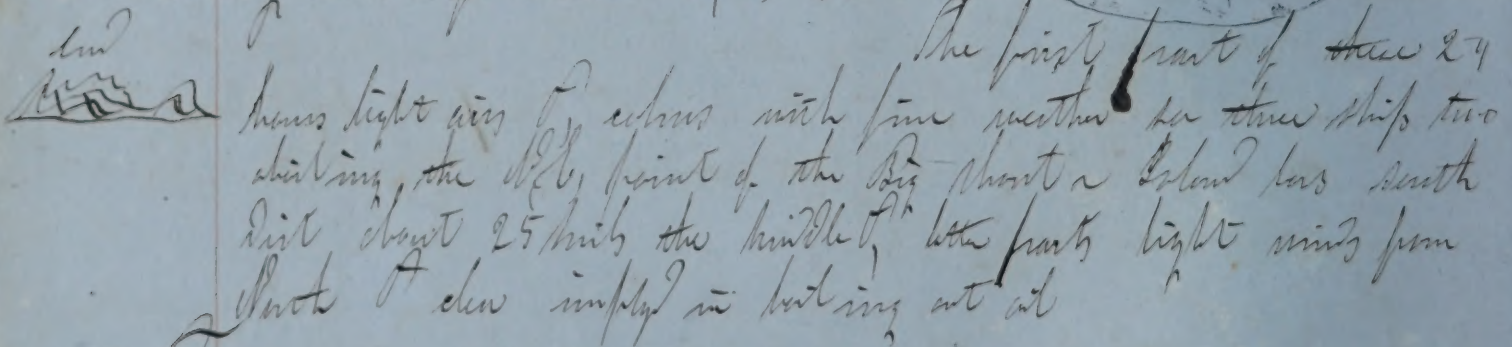 land
The first part of these 24
hours light airs & calms with fine weather saw three ships two
boiling the N.E. point of the Big Island bars south
Dist about 25 miles the middle & latter parts light winds from
North & clear imployd in boiling out oil